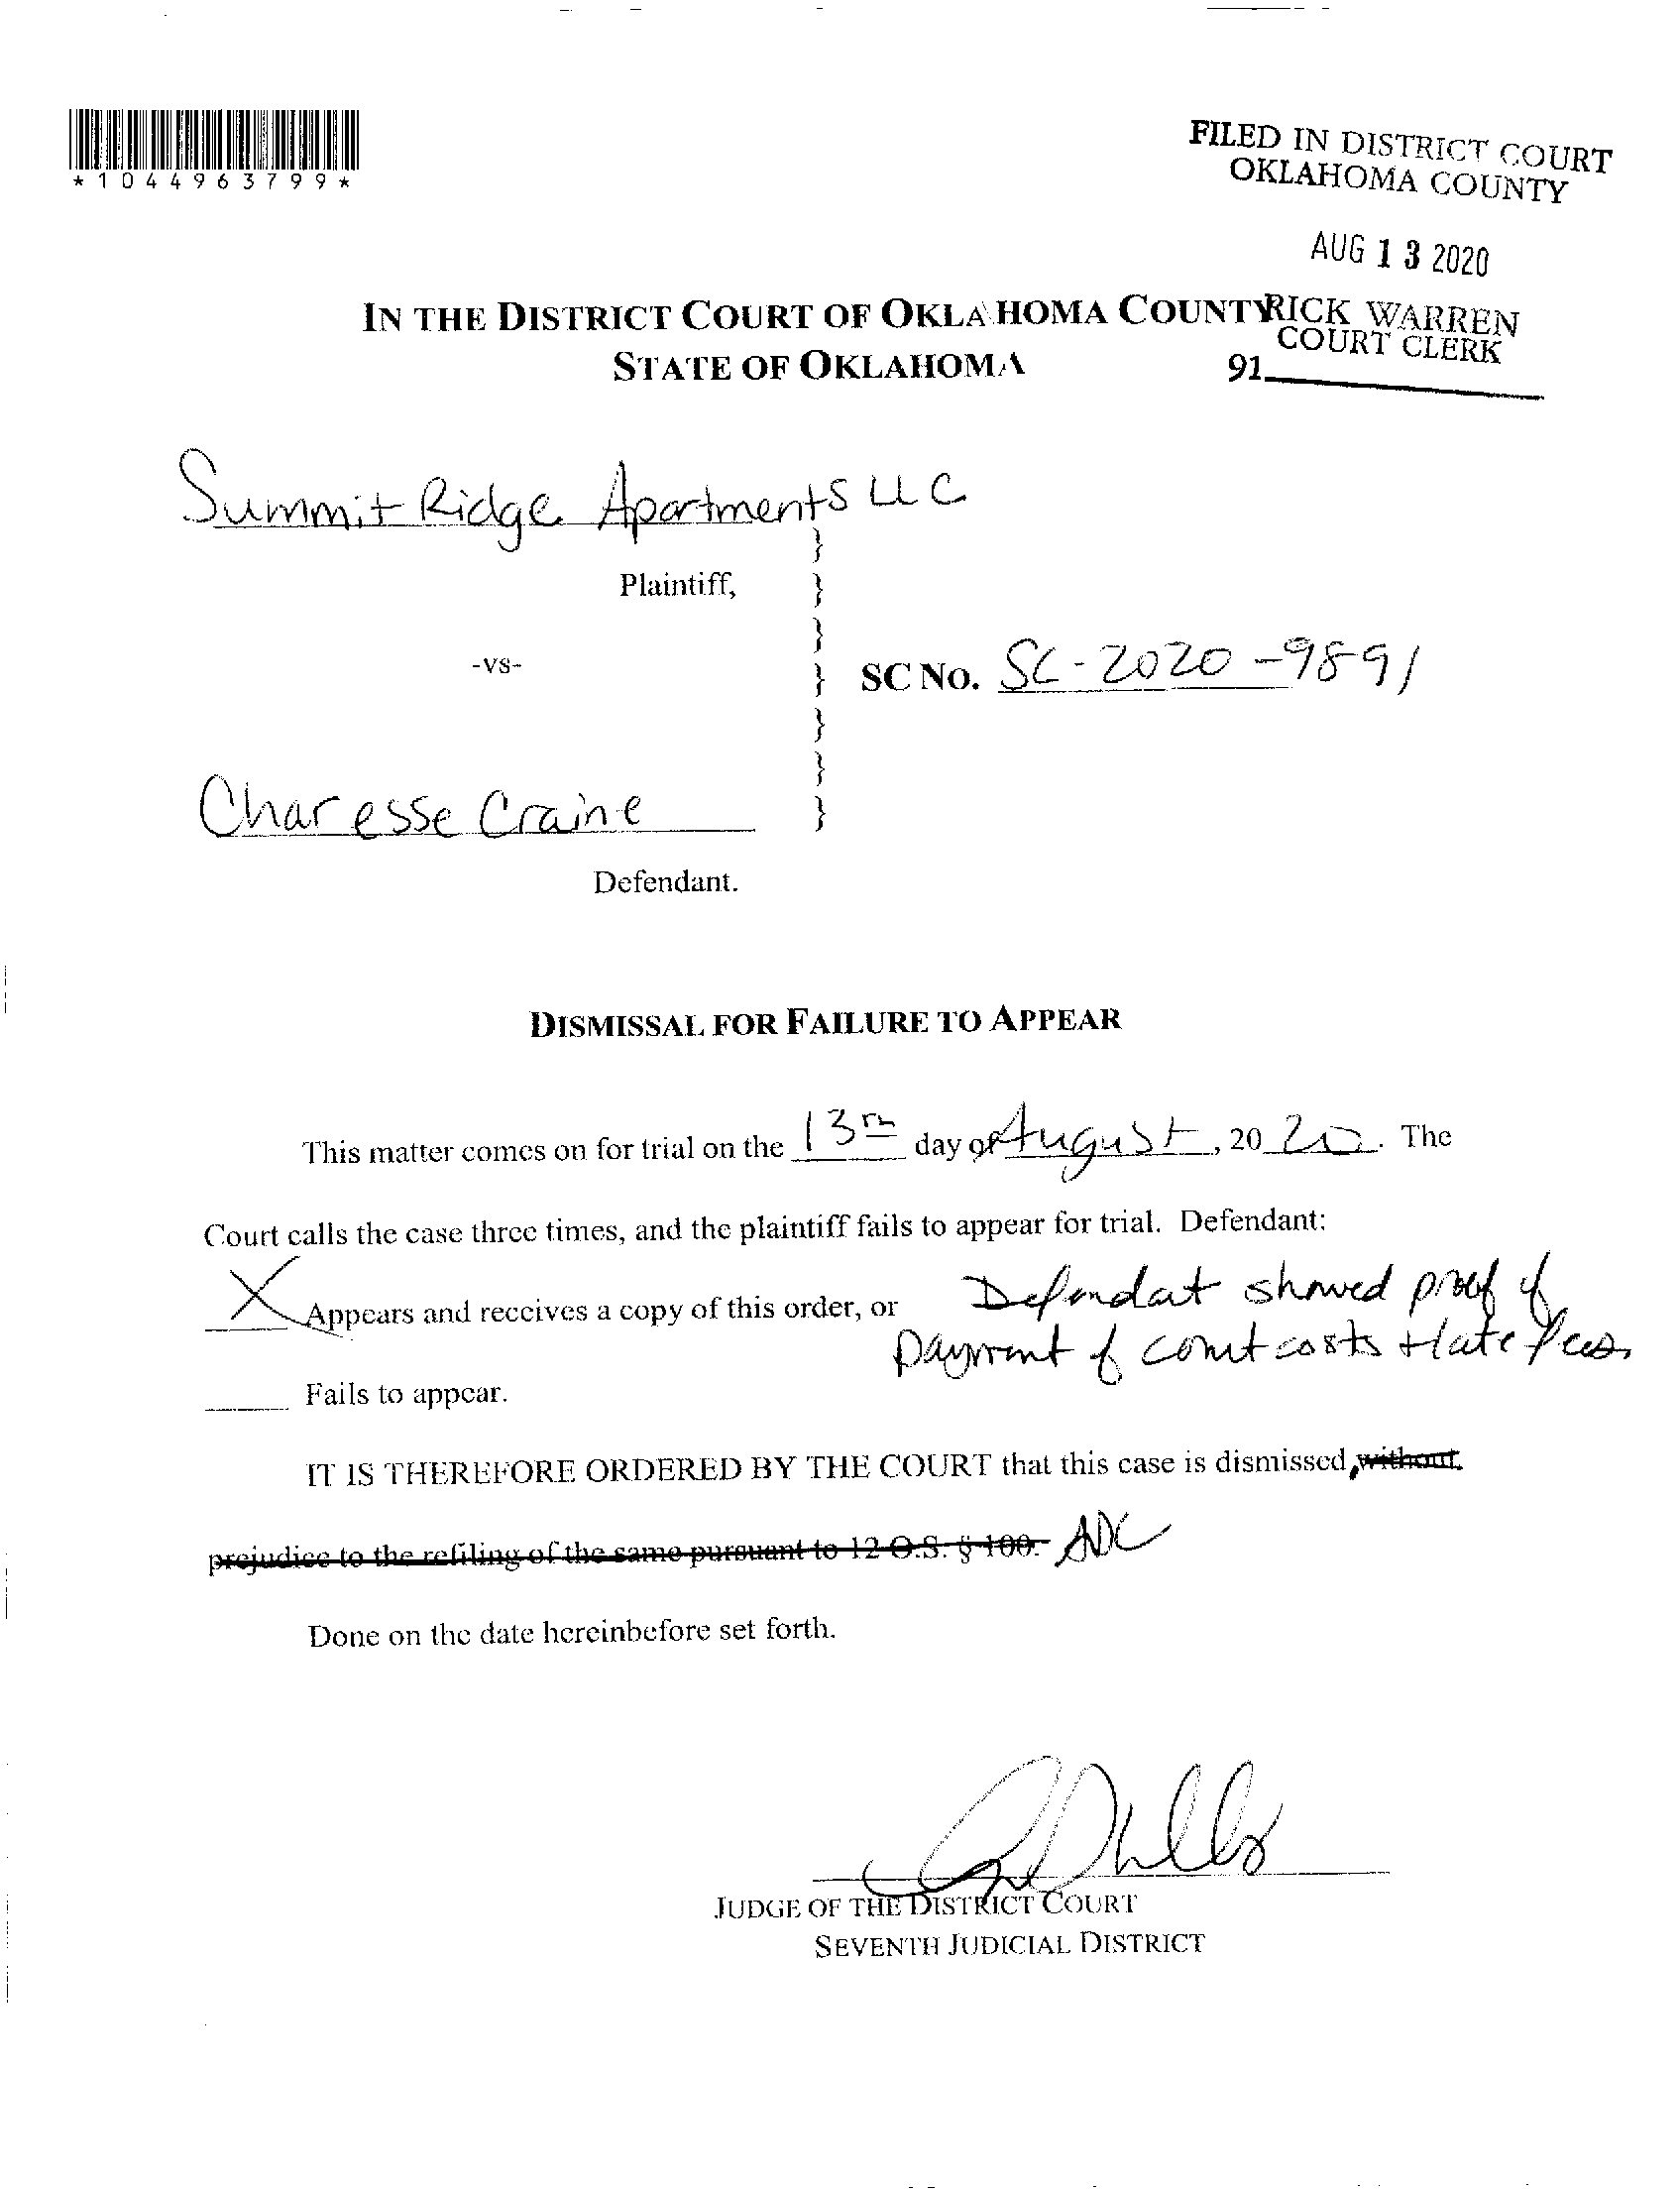 *1044963799*
FILED IN DISTRICT COURT
OKLAHOMA COUNTY
AUG 13 2020
RICK WARREN
COURT CLERK
91
IN THE DISTRICT COURT OF OKLAHOMA COUNTY
STATE OF OKLAHOMA
Summit Ridge Apartments LLC
}
Plaintiff, }
}
-vs- } SC NO. SC-2020-9891
}
}
Charesse Craine }
Defendant.
DISMISSAL FOR FAILURE TO APPEAR
This matter comes on for trial on the 13th day of August, 2020. The
Court calls the case three times, and the plaintiff fails to appear for trial. Defendant:
X Appears and receives a copy of this order, or Defendat showed proof of
payment of court costs + late fees.
Fails to appear.
IT IS THEREFORE ORDERED BY THE COURT that this case is dismissed, without
prejudice to the refiling of the same pursuant to 12 O.S. § 100.
Done on the date hereinbefore set forth.
JUDGE OF THE DISTRICT COURT
SEVENTH JUDICIAL DISTRICT